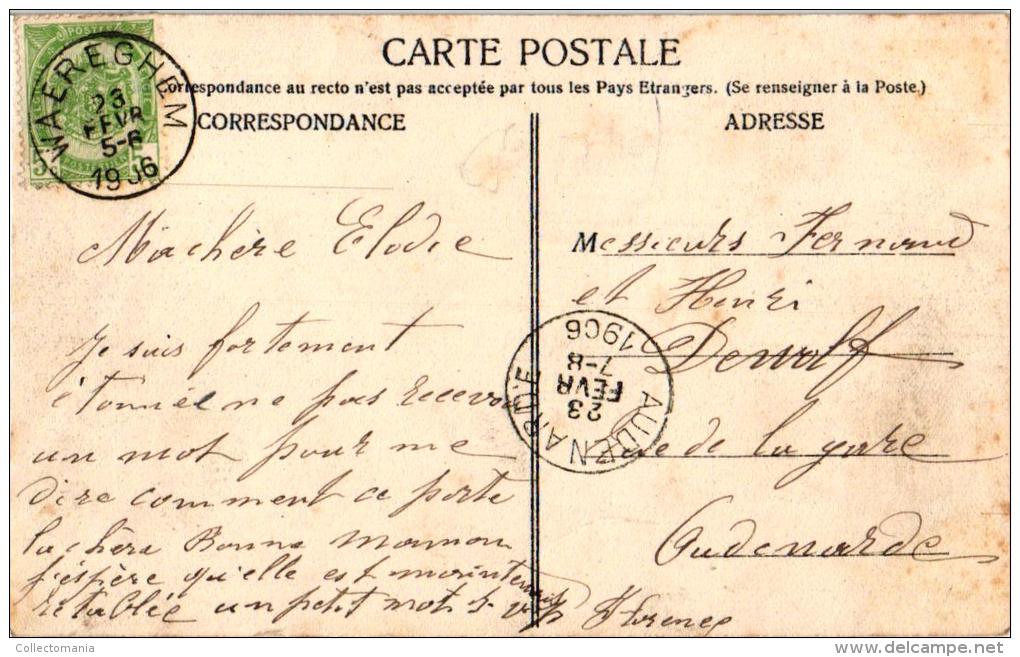 CARTE POSTALE
Correspondance au recto n'est pas acceptée par tous les Pays Etrangers. (Se renseigner à la Poste.)
CORRESPONDANCE
ADRESSE
WAEREGHEM
23
FEVR
5-6
1906
Ma chère Elodie
Je suis fortement
étonnée ne pas recevoir
un mot pour me
dire comment ce porte
la chère Bonne Maman
j'éspère qu'elle est maintenant
rétablée un petit mot s. v. p.
Messieurs Fernand
et Henri
Dewolf
Rue de la gare
Audenarde
Florence
AUDENARDE
23
FEVR
7-8
1906
Collectomania
www.delcampe.net